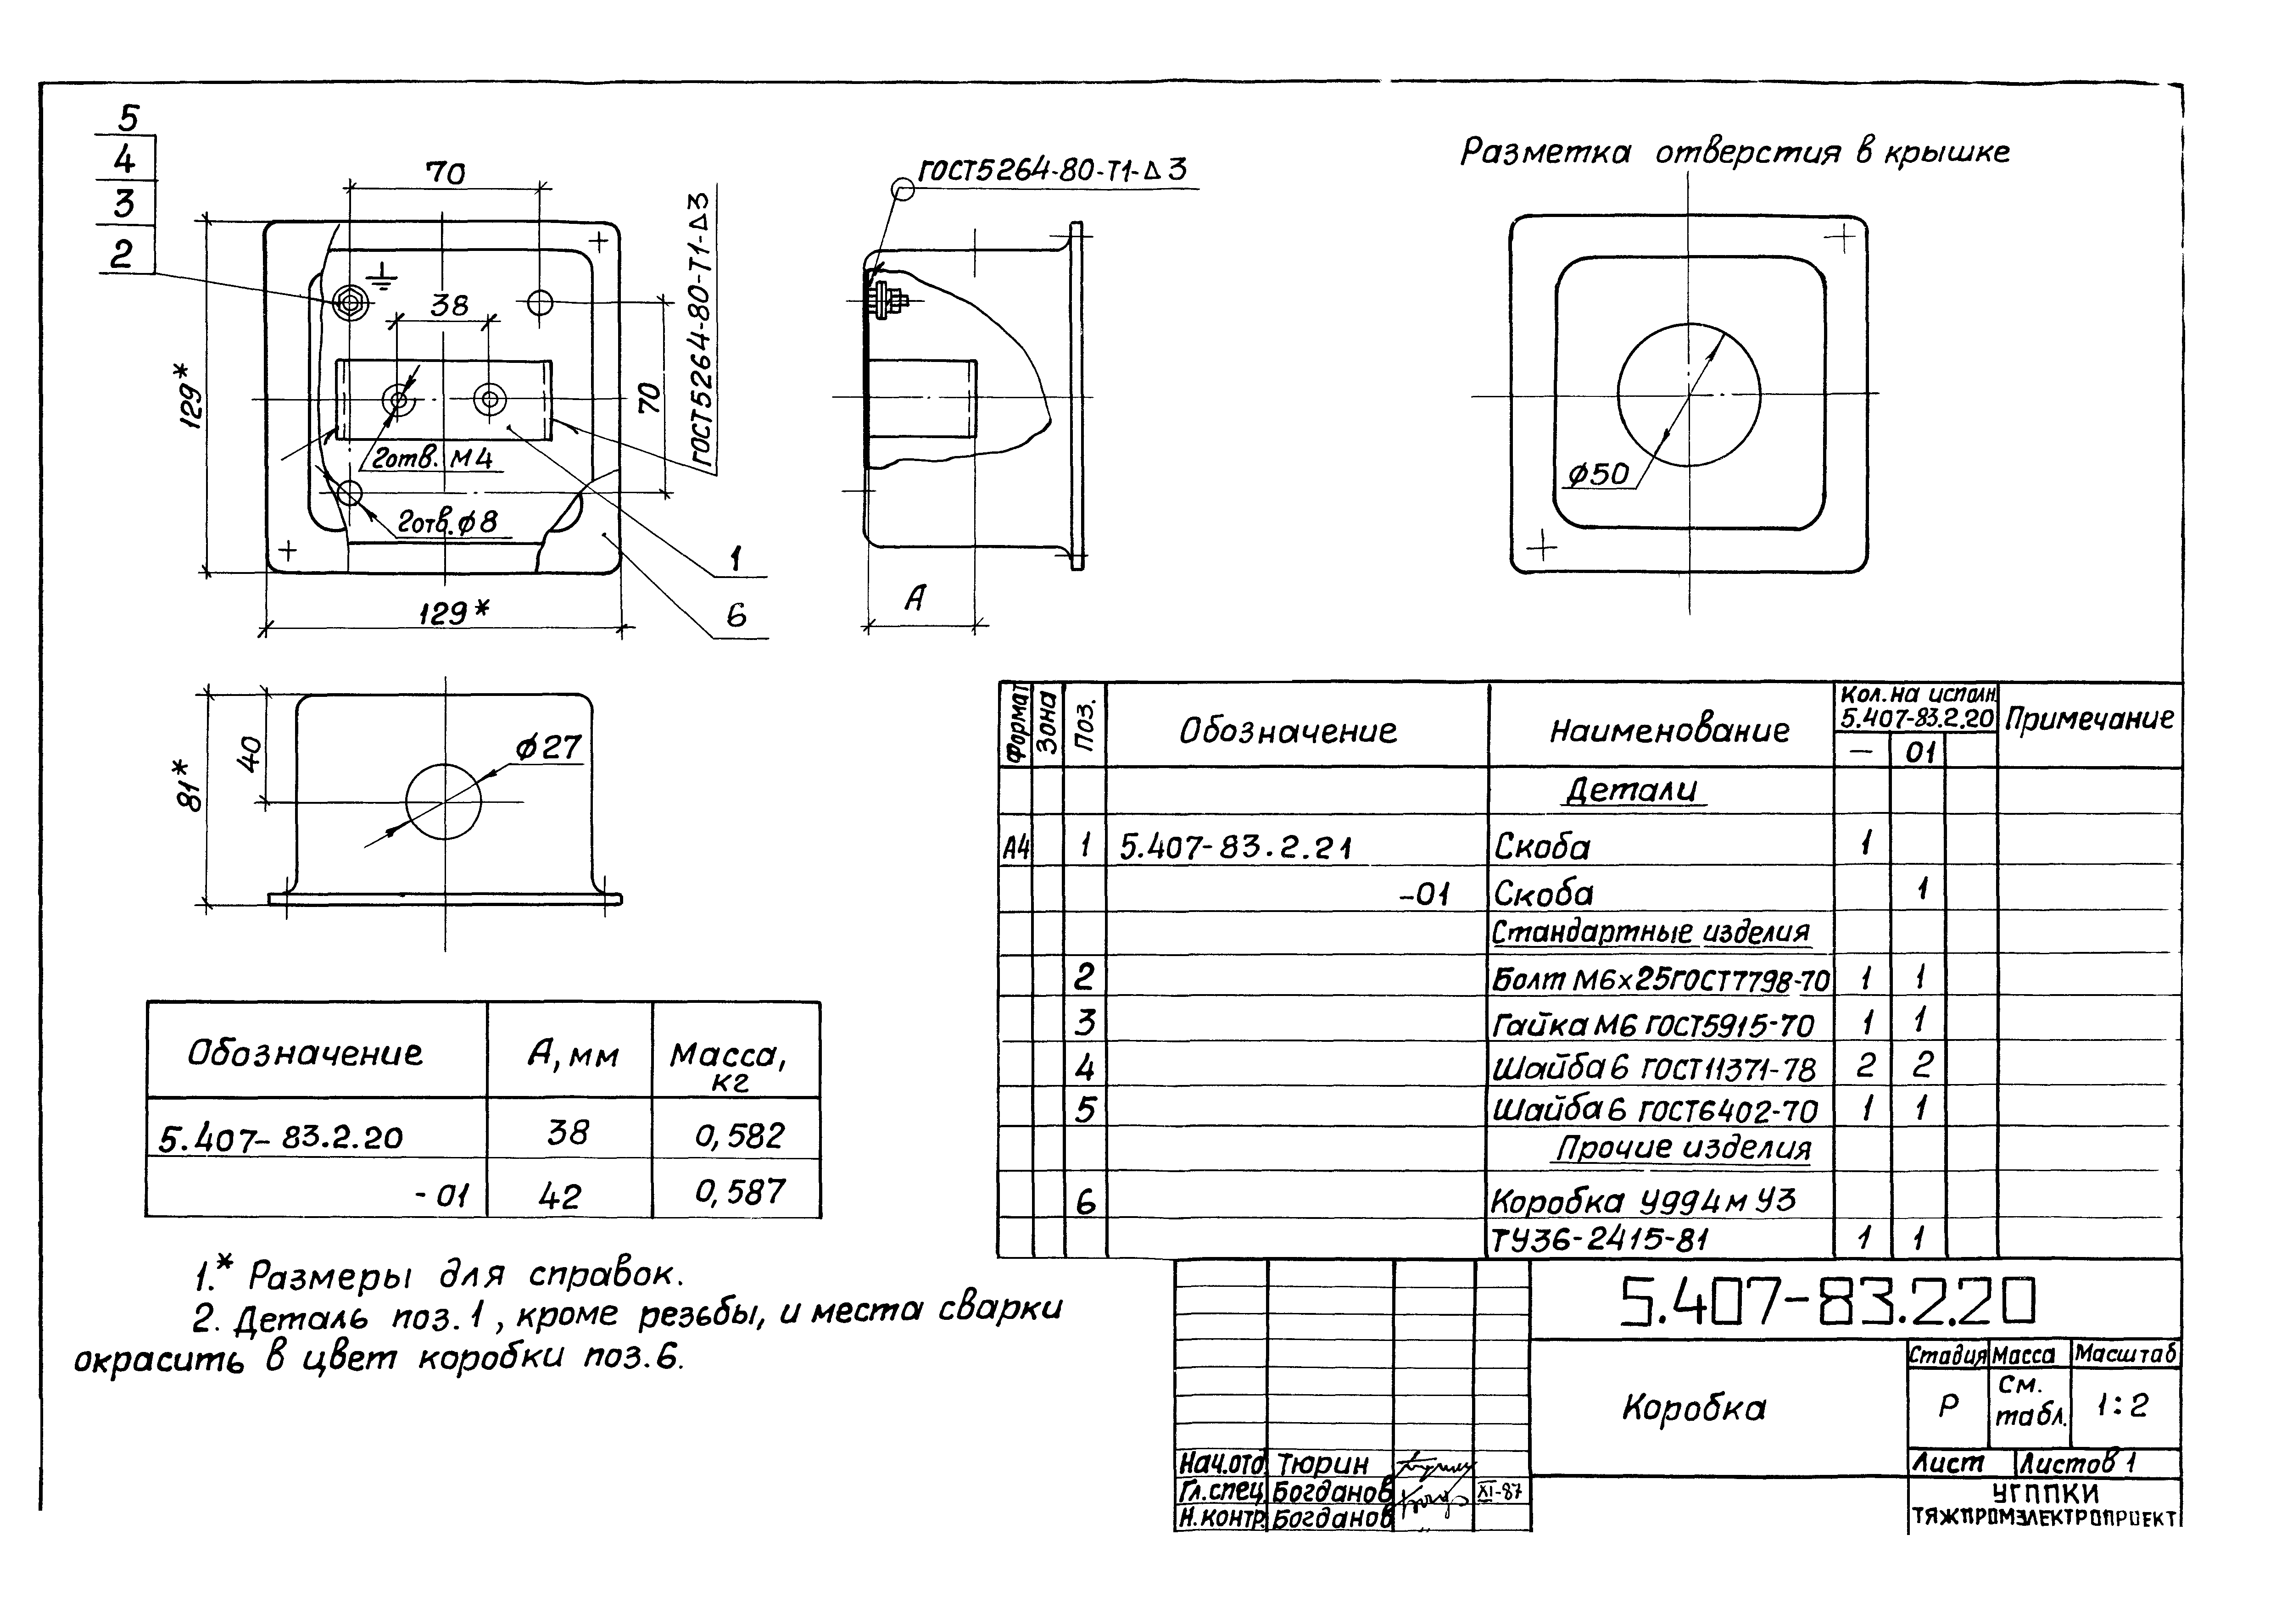 5
4
3
2
70
38
129*
70
ГОСТ5264-80-Т1-Δ3
2отв. М4
2отв. ϕ8
1
6
129*
ГОСТ5264-80-Т1-Δ3
А
Разметка отверстия в крышке
ϕ50
81*
40
ϕ27
Формат Зона Поз. Обозначение Наименование Кол. на исполн. 5.407-83.2.20 Примечание
— 01
Детали
А4 1 5.407-83.2.21 Скоба 1
-01 Скоба 1
Стандартные изделия
2 Болт М6х25ГОСТ7798-70 1 1
3 Гайка М6 ГОСТ5915-70 1 1
4 Шайба 6 ГОСТ11371-78 2 2
5 Шайба 6 ГОСТ6402-70 1 1
Прочие изделия
6 Коробка У994м У3
ТУ36-2415-81 1 1
Обозначение А, мм Масса, кг
5.407-83.2.20 38 0,582
-01 42 0,587
1.* Размеры для справок.
2. Деталь поз.1, кроме резьбы, и места сварки
окрасить в цвет коробки поз.6.
5.407-83.2.20
Коробка
Стадия Масса Масштаб
Р См. табл. 1:2
Лист Листов 1
УГППКИ
ТЯЖПРОМЭЛЕКТРОПРОЕКТ
Нач.отд Тюрин
Гл.спец. Богданов XI-87
Н.контр. Богданов